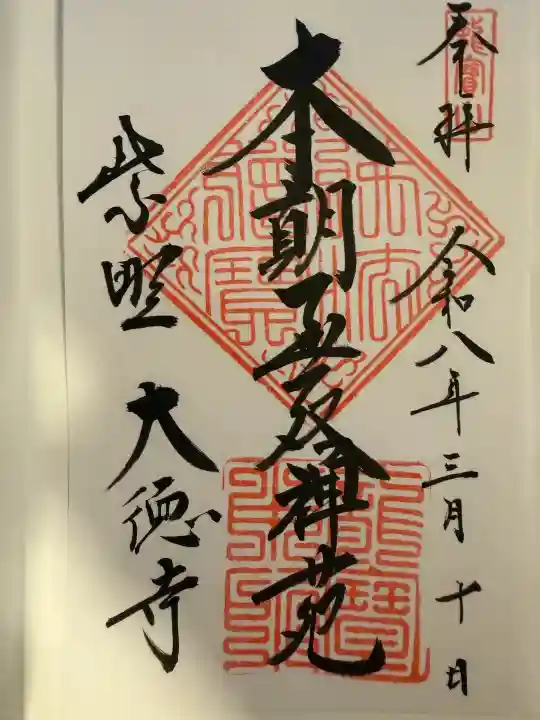 奉拝
令和八年三月十日
本朝無双禅苑
紫野
大徳寺